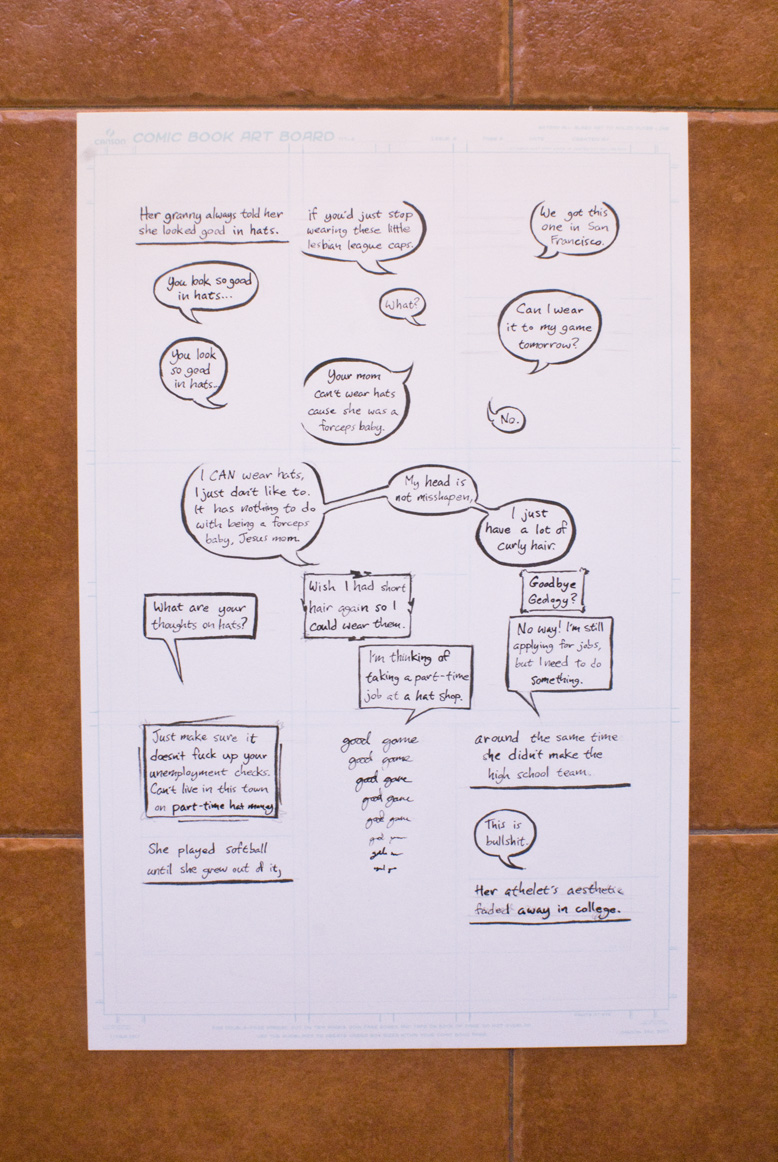 canson COMIC BOOK ART BOARD
Her granny always told her
she looked good in hats.
You look so good
in hats...
You look
so good
in hats...
if you'd just stop
wearing these little
lesbian league caps.
What?
Your mom
can't wear hats
cause she was a
forceps baby.
We got this
one in San
Francisco.
Can I wear
it to my game
tomorrow?
No.
I CAN wear hats,
I just don't like to.
It has nothing to do
with being a forceps
baby, Jesus mom.
My head is
not misshapen,
I just
have a lot of
curly hair.
What are your
thoughts on hats?
Wish I had short
hair again so I
could wear them.
I'm thinking of
taking a part-time
job at a hat shop.
Goodbye
Geology?
No way! I'm still
applying for jobs,
but I need to do
something.
Just make sure it
doesn't fuck up your
unemployment checks.
Can't live in this town
on part-time hat money
She played softball
until she grew out of it,
good game
good game
good game
good game
good game
around the same time
she didn't make the
high school team.
This is
bullshit.
Her athelet's aesthetic
faded away in college.